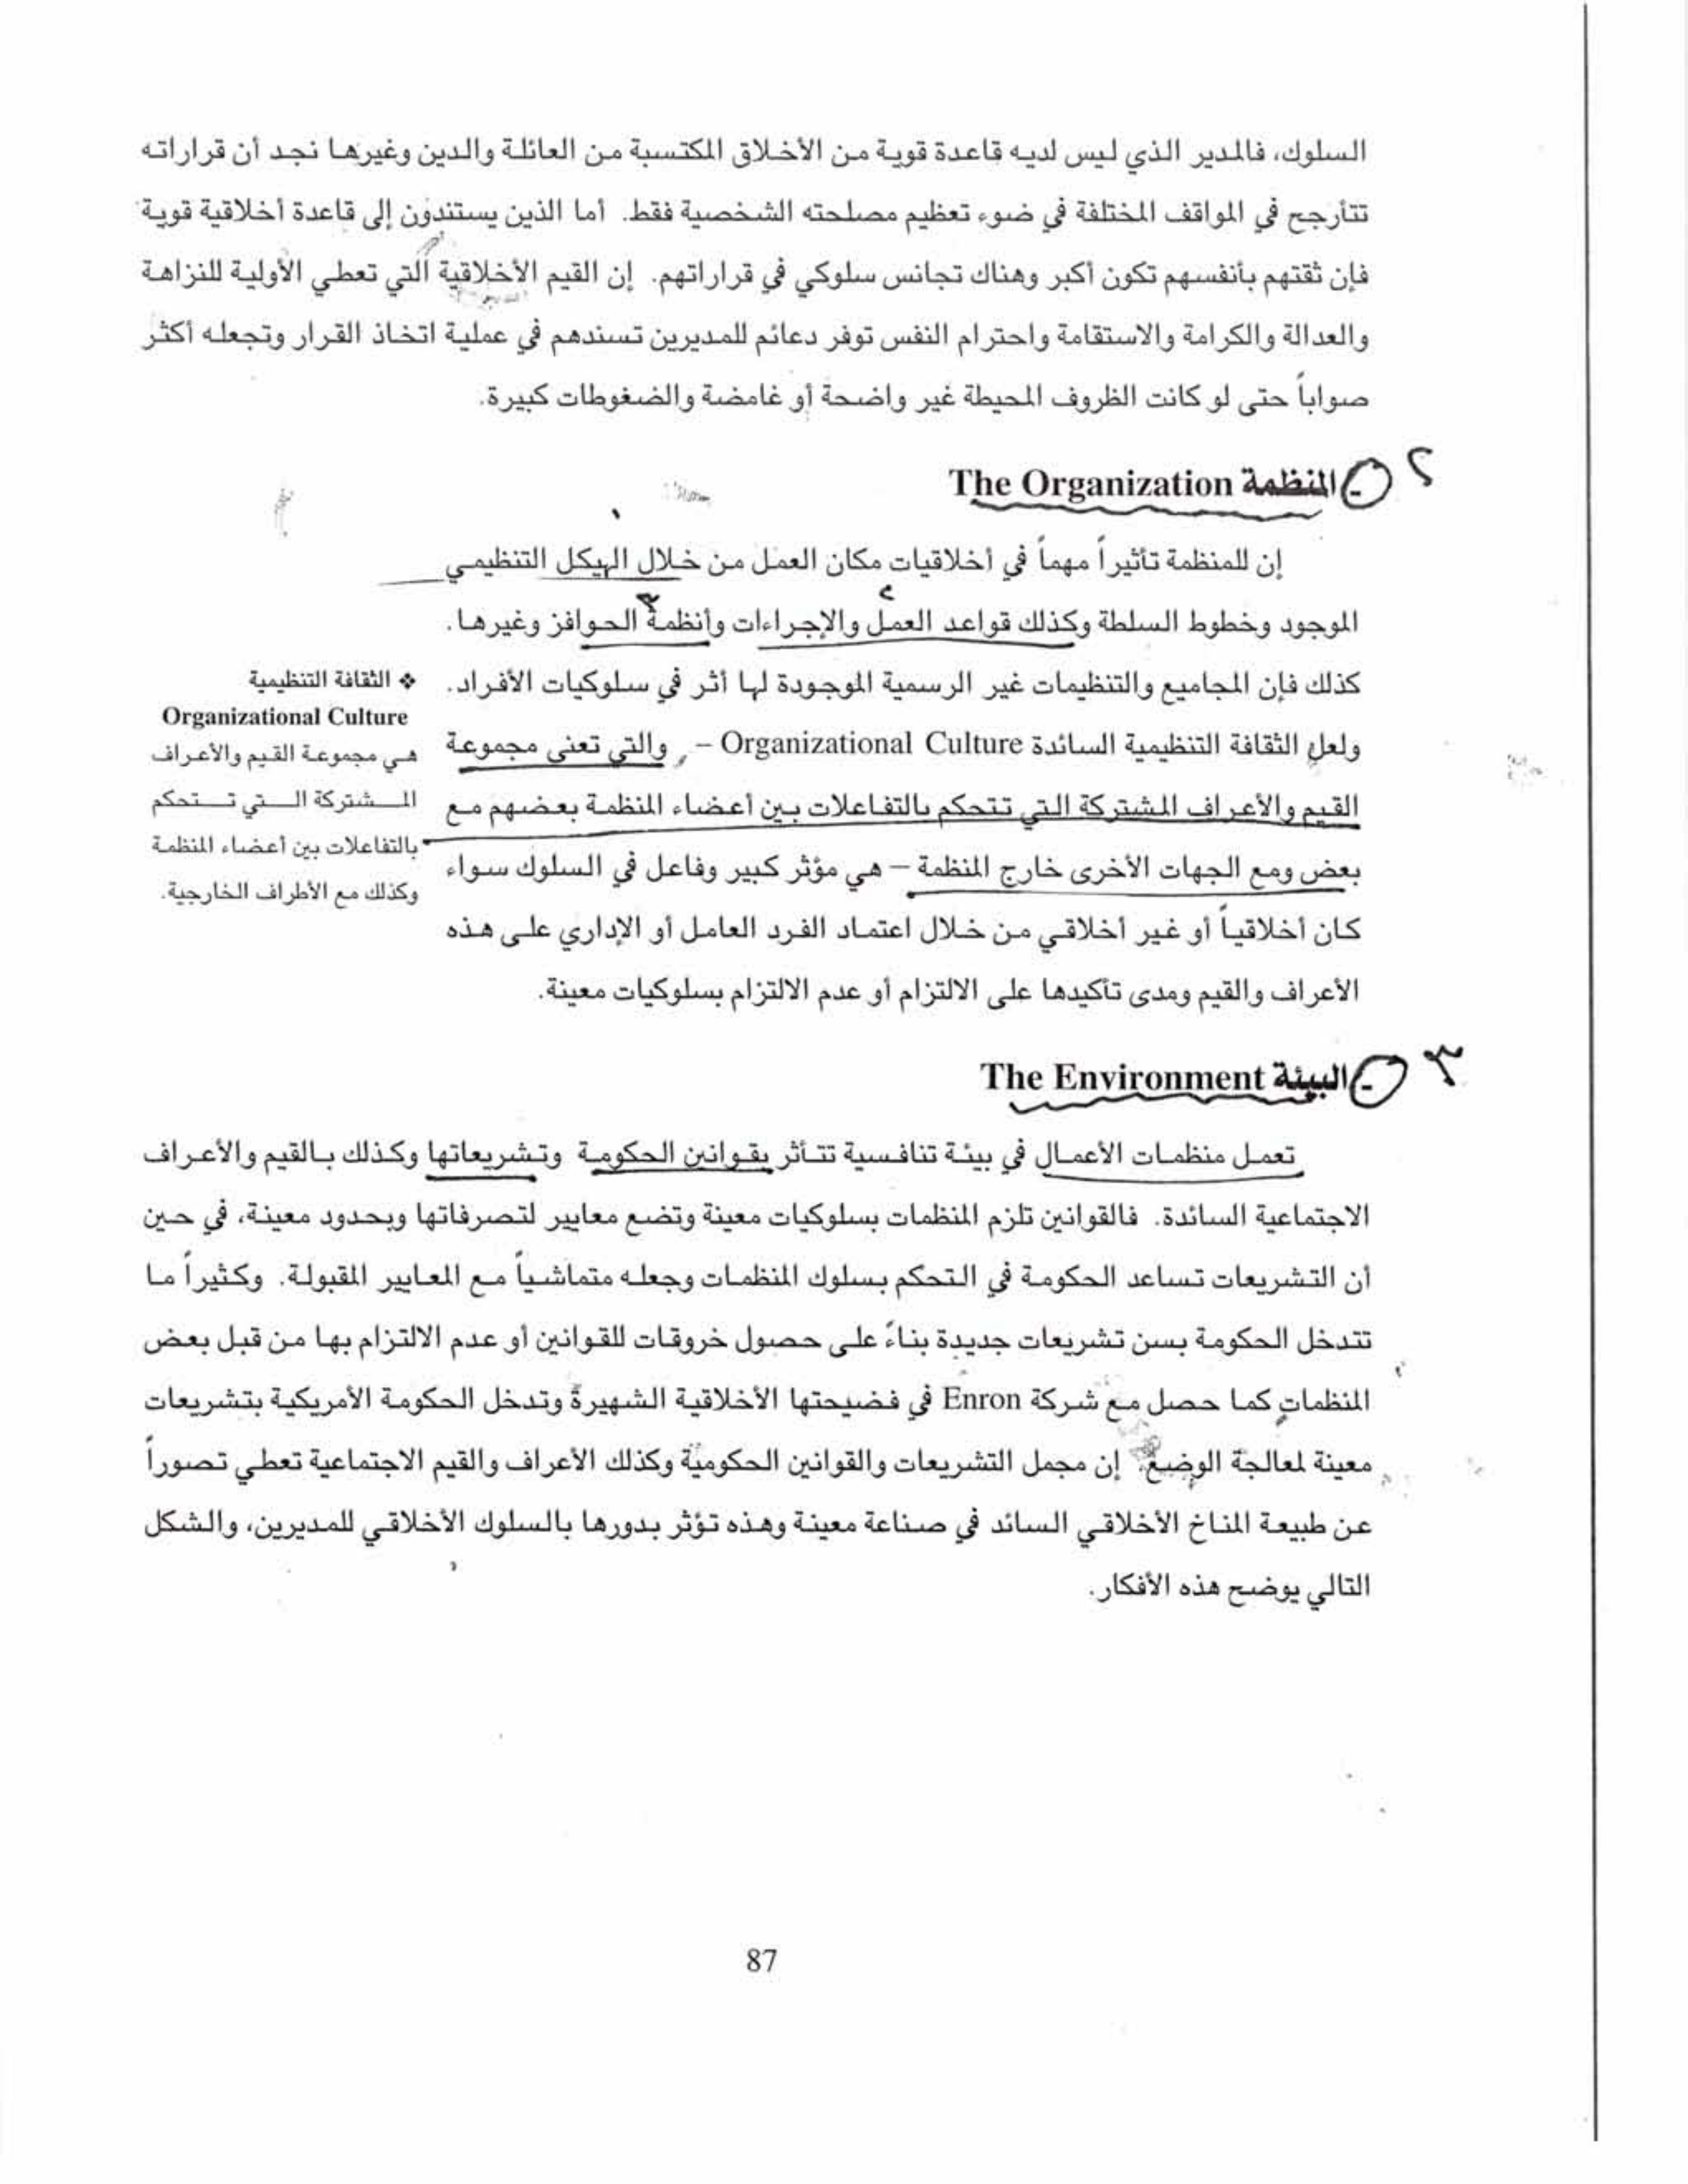 السلوك، فالمدير الذي ليس لديه قاعدة قوية من الأخلاق المكتسبة من العائلة والدين وغيرها نجد أن قراراته
تتأرجح في المواقف المختلفة في ضوء تعظيم مصلحته الشخصية فقط. أما الذين يستندون إلى قاعدة أخلاقية قوية
فإن ثقتهم بأنفسهم تكون أكبر وهناك تجانس سلوكي في قراراتهم. إن القيم الأخلاقية التي تعطي الأولية للنزاهة
والعدالة والكرامة والاستقامة واحترام النفس توفر دعائم للمديرين تسندهم في عملية اتخاذ القرار وتجعله أكثر
صواباً حتى لو كانت الظروف المحيطة غير واضحة أو غامضة والضغوطات كبيرة.
٢ - المنظمة The Organization
١
إن للمنظمة تأثيراً مهماً في أخلاقيات مكان العمل من خلال الهيكل التنظيمي
٢
٣
الموجود وخطوط السلطة وكذلك قواعد العمل والإجراءات وأنظمة الحوافز وغيرها.
كذلك فإن المجاميع والتنظيمات غير الرسمية الموجودة لها أثر في سلوكيات الأفراد.
ولعل الثقافة التنظيمية السائدة Organizational Culture – والتي تعني مجموعة
القيم والأعراف المشتركة التي تتحكم بالتفاعلات بين أعضاء المنظمة بعضهم مع
بعض ومع الجهات الأخرى خارج المنظمة – هي مؤثر كبير وفاعل في السلوك سواء
كان أخلاقياً أو غير أخلاقي من خلال اعتماد الفرد العامل أو الإداري على هذه
الأعراف والقيم ومدى تأكيدها على الالتزام أو عدم الالتزام بسلوكيات معينة.
❖ الثقافة التنظيمية
Organizational Culture
هي مجموعة القيم والأعراف
المشتركة التي تتحكم
بالتفاعلات بين أعضاء المنظمة
وكذلك مع الأطراف الخارجية.
٣ - البيئة The Environment
تعمل منظمات الأعمال في بيئة تنافسية تتأثر بقوانين الحكومة وتشريعاتها وكذلك بالقيم والأعراف
الاجتماعية السائدة. فالقوانين تلزم المنظمات بسلوكيات معينة وتضع معايير لتصرفاتها وبحدود معينة، في حين
أن التشريعات تساعد الحكومة في التحكم بسلوك المنظمات وجعله متماشياً مع المعايير المقبولة. وكثيراً ما
تتدخل الحكومة بسن تشريعات جديدة بناءً على حصول خروقات للقوانين أو عدم الالتزام بها من قبل بعض
المنظمات كما حصل مع شركة Enron في فضيحتها الأخلاقية الشهيرة وتدخل الحكومة الأمريكية بتشريعات
معينة لمعالجة الوضع. إن مجمل التشريعات والقوانين الحكومية وكذلك الأعراف والقيم الاجتماعية تعطي تصوراً
عن طبيعة المناخ الأخلاقي السائد في صناعة معينة وهذه تؤثر بدورها بالسلوك الأخلاقي للمديرين، والشكل
التالي يوضح هذه الأفكار.
87